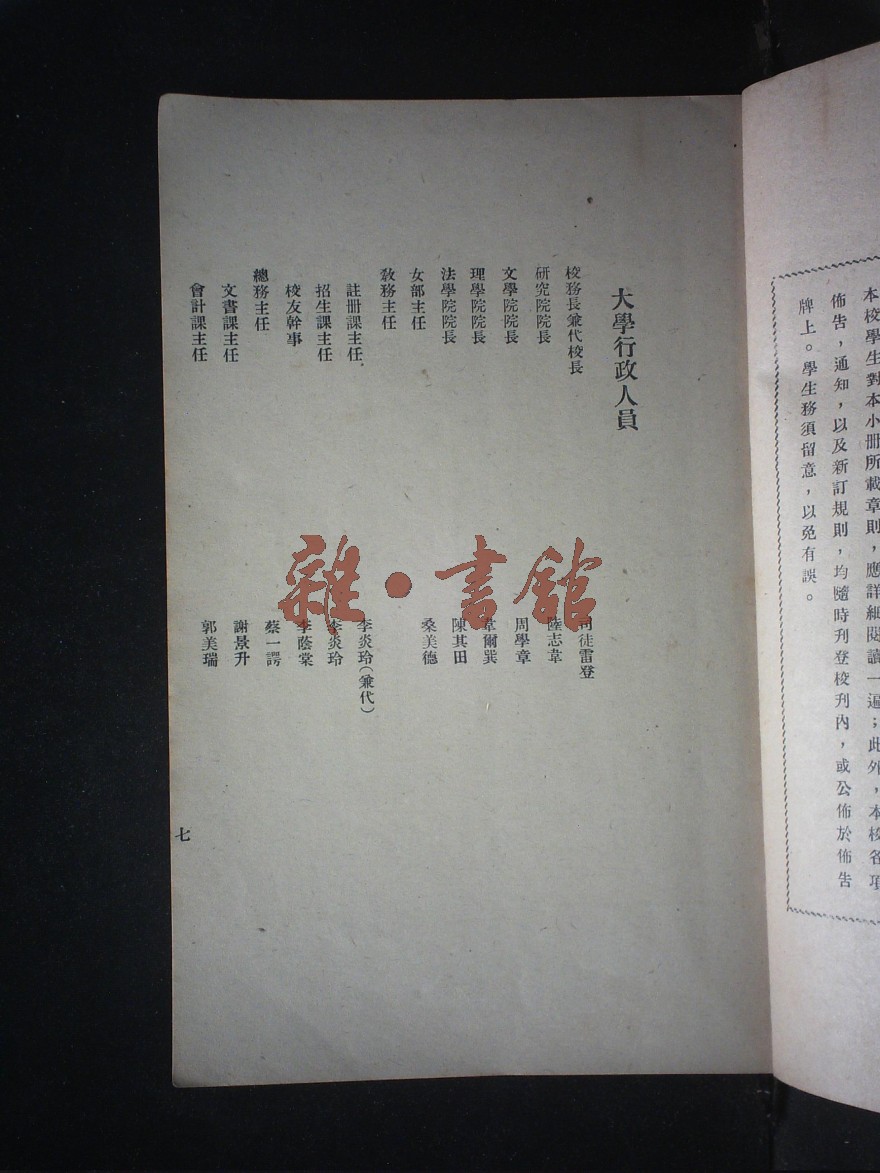 本校學生對本小册所載章則，應詳細閱讀一遍；此外，本校各項
佈告，通知，以及新訂規則，均隨時刊登校刊內，或公佈於佈告
牌上。學生務須留意，以免有誤。
大學行政人員
校務長兼代校長 司徒雷登
研究院院長 陸志韋
文學院院長 周學章
理學院院長 韋爾巽
法學院院長 陳其田
女部主任 桑美德
教務主任
註册課主任 李炎玲（兼代）
招生課主任 李炎玲
校友幹事 李蔭棠
總務主任 蔡一諤
文書課主任 謝景升
會計課主任 郭美瑞
七
雜·書館